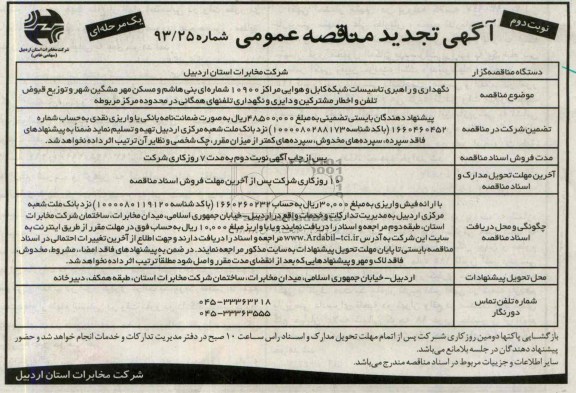 نوبت دوم
آگهی تجدید مناقصه عمومی شماره ۹۳/۲۵
یک مرحله‌ای
شرکت مخابرات استان اردبیل
(سهامی خاص)
دستگاه مناقصه‌گزار
شرکت مخابرات استان اردبیل
موضوع مناقصه
نگهداری و راهبری تاسیسات شبکه کابل و هوایی مراکز ۱۰۹۰۰ شماره‌ای بنی هاشم و مسکن مهر مشگین شهر و توزیع قبوض
تلفن و اخطار مشترکین و دایری و نگهداری تلفنهای همگانی در محدوده مرکز مربوطه
تضمین شرکت در مناقصه
پیشنهاد دهندگان بایستی تضمینی به مبلغ ۴۸,۵۰۰,۰۰۰ ریال به صورت ضمانت‌نامه بانکی یا واریزی نقدی به حساب شماره
۱۶۶۰۴۶۰۴۵۲ (با کد شناسه ۱۰۰۰۰۸۰۲۸۸۱۷۳) نزد بانک ملت شعبه مرکزی اردبیل تهیه و تسلیم نماید ضمناً به پیشنهادهای
فاقد سپرده، سپرده‌های مخدوش، سپرده‌های کمتر از میزان مقرر، چک شخصی و نظایر آن ترتیب اثر داده نخواهد شد.
مدت فروش اسناد مناقصه
پس از چاپ آگهی نوبت دوم به مدت ۷ روز کاری شرکت
آخرین مهلت تحویل مدارک و
اسناد مناقصه
۱۰ روز کاری شرکت پس از آخرین مهلت فروش اسناد مناقصه
چگونگی و محل دریافت
اسناد مناقصه
با ارائه فیش واریزی به مبلغ ۳۰۰,۰۰۰ ریال به حساب ۱۶۶۰۲۶۰۲۳۲ (با کد شناسه ۱۰۰۰۰۸۰۱۱۹۱۲۰) نزد بانک ملت شعبه
مرکزی اردبیل به مدیریت تدارکات و خدمات واقع در اردبیل - خیابان جمهوری اسلامی، میدان مخابرات، ساختمان شرکت مخابرات
استان، طبقه دوم مراجعه و اسناد را دریافت نمایند و یا با واریز مبلغ ۱۰,۰۰۰ ریال به حساب فوق در مهلت مقرر از طریق اینترنت به
سایت این شرکت به آدرس www.Ardabil-tci.ir مراجعه و اسناد را دریافت دارند و جهت اطلاع از آخرین تغییرات احتمالی در اسناد
مناقصه بایستی تا پایان مهلت تحویل پیشنهادات به سایت مذکور مراجعه نمایند. در ضمن به پیشنهادهای فاقد امضاء، مشروط، مخدوش،
فاقد لاک و مهر و پیشنهادهایی که بعد از انقضای مدت مقرر واصل شود مطلقاً ترتیب اثر داده نخواهد شد.
محل تحویل پیشنهادات
اردبیل - خیابان جمهوری اسلامی، میدان مخابرات، ساختمان شرکت مخابرات استان، طبقه همکف، دبیرخانه
شماره تلفن تماس
دورنگار
۰۴۵-۳۳۳۶۳۲۱۸
۰۴۵-۳۳۳۶۳۵۵۵
بازگشایی پاکتها دومین روز کاری شرکت پس از اتمام مهلت تحویل مدارک و اسناد راس ساعت ۱۰ صبح در دفتر مدیریت تدارکات و خدمات انجام خواهد شد و حضور
پیشنهاد دهندگان در جلسه بلامانع می‌باشد.
سایر اطلاعات و جزییات مربوط در اسناد مناقصه مندرج می‌باشد.
شرکت مخابرات استان اردبیل